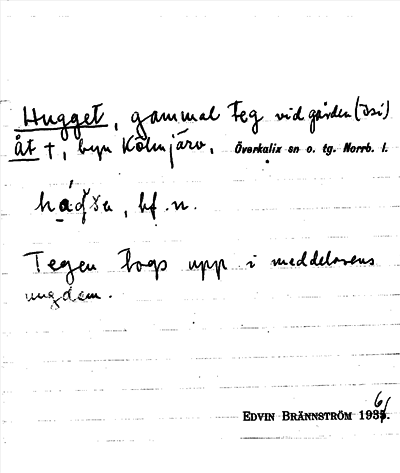 Hugget, gammal Teg vid gården (Isi)
Åt †, byn Kölmjärv, Överkalix sn o. tg. Norrb. l.
bf. n.
Tegen togs upp i meddelarens
ungdom.
EDVIN BRÄNNSTRÖM 1936.